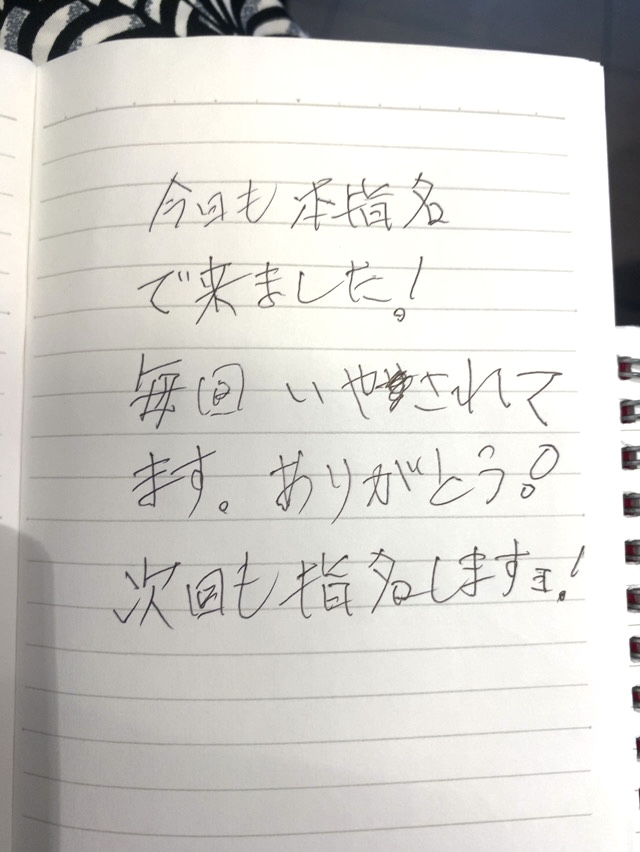 今回も本指名
で来ました!
毎回いやされて
ます。ありがとう!
次回も指名しますョ!